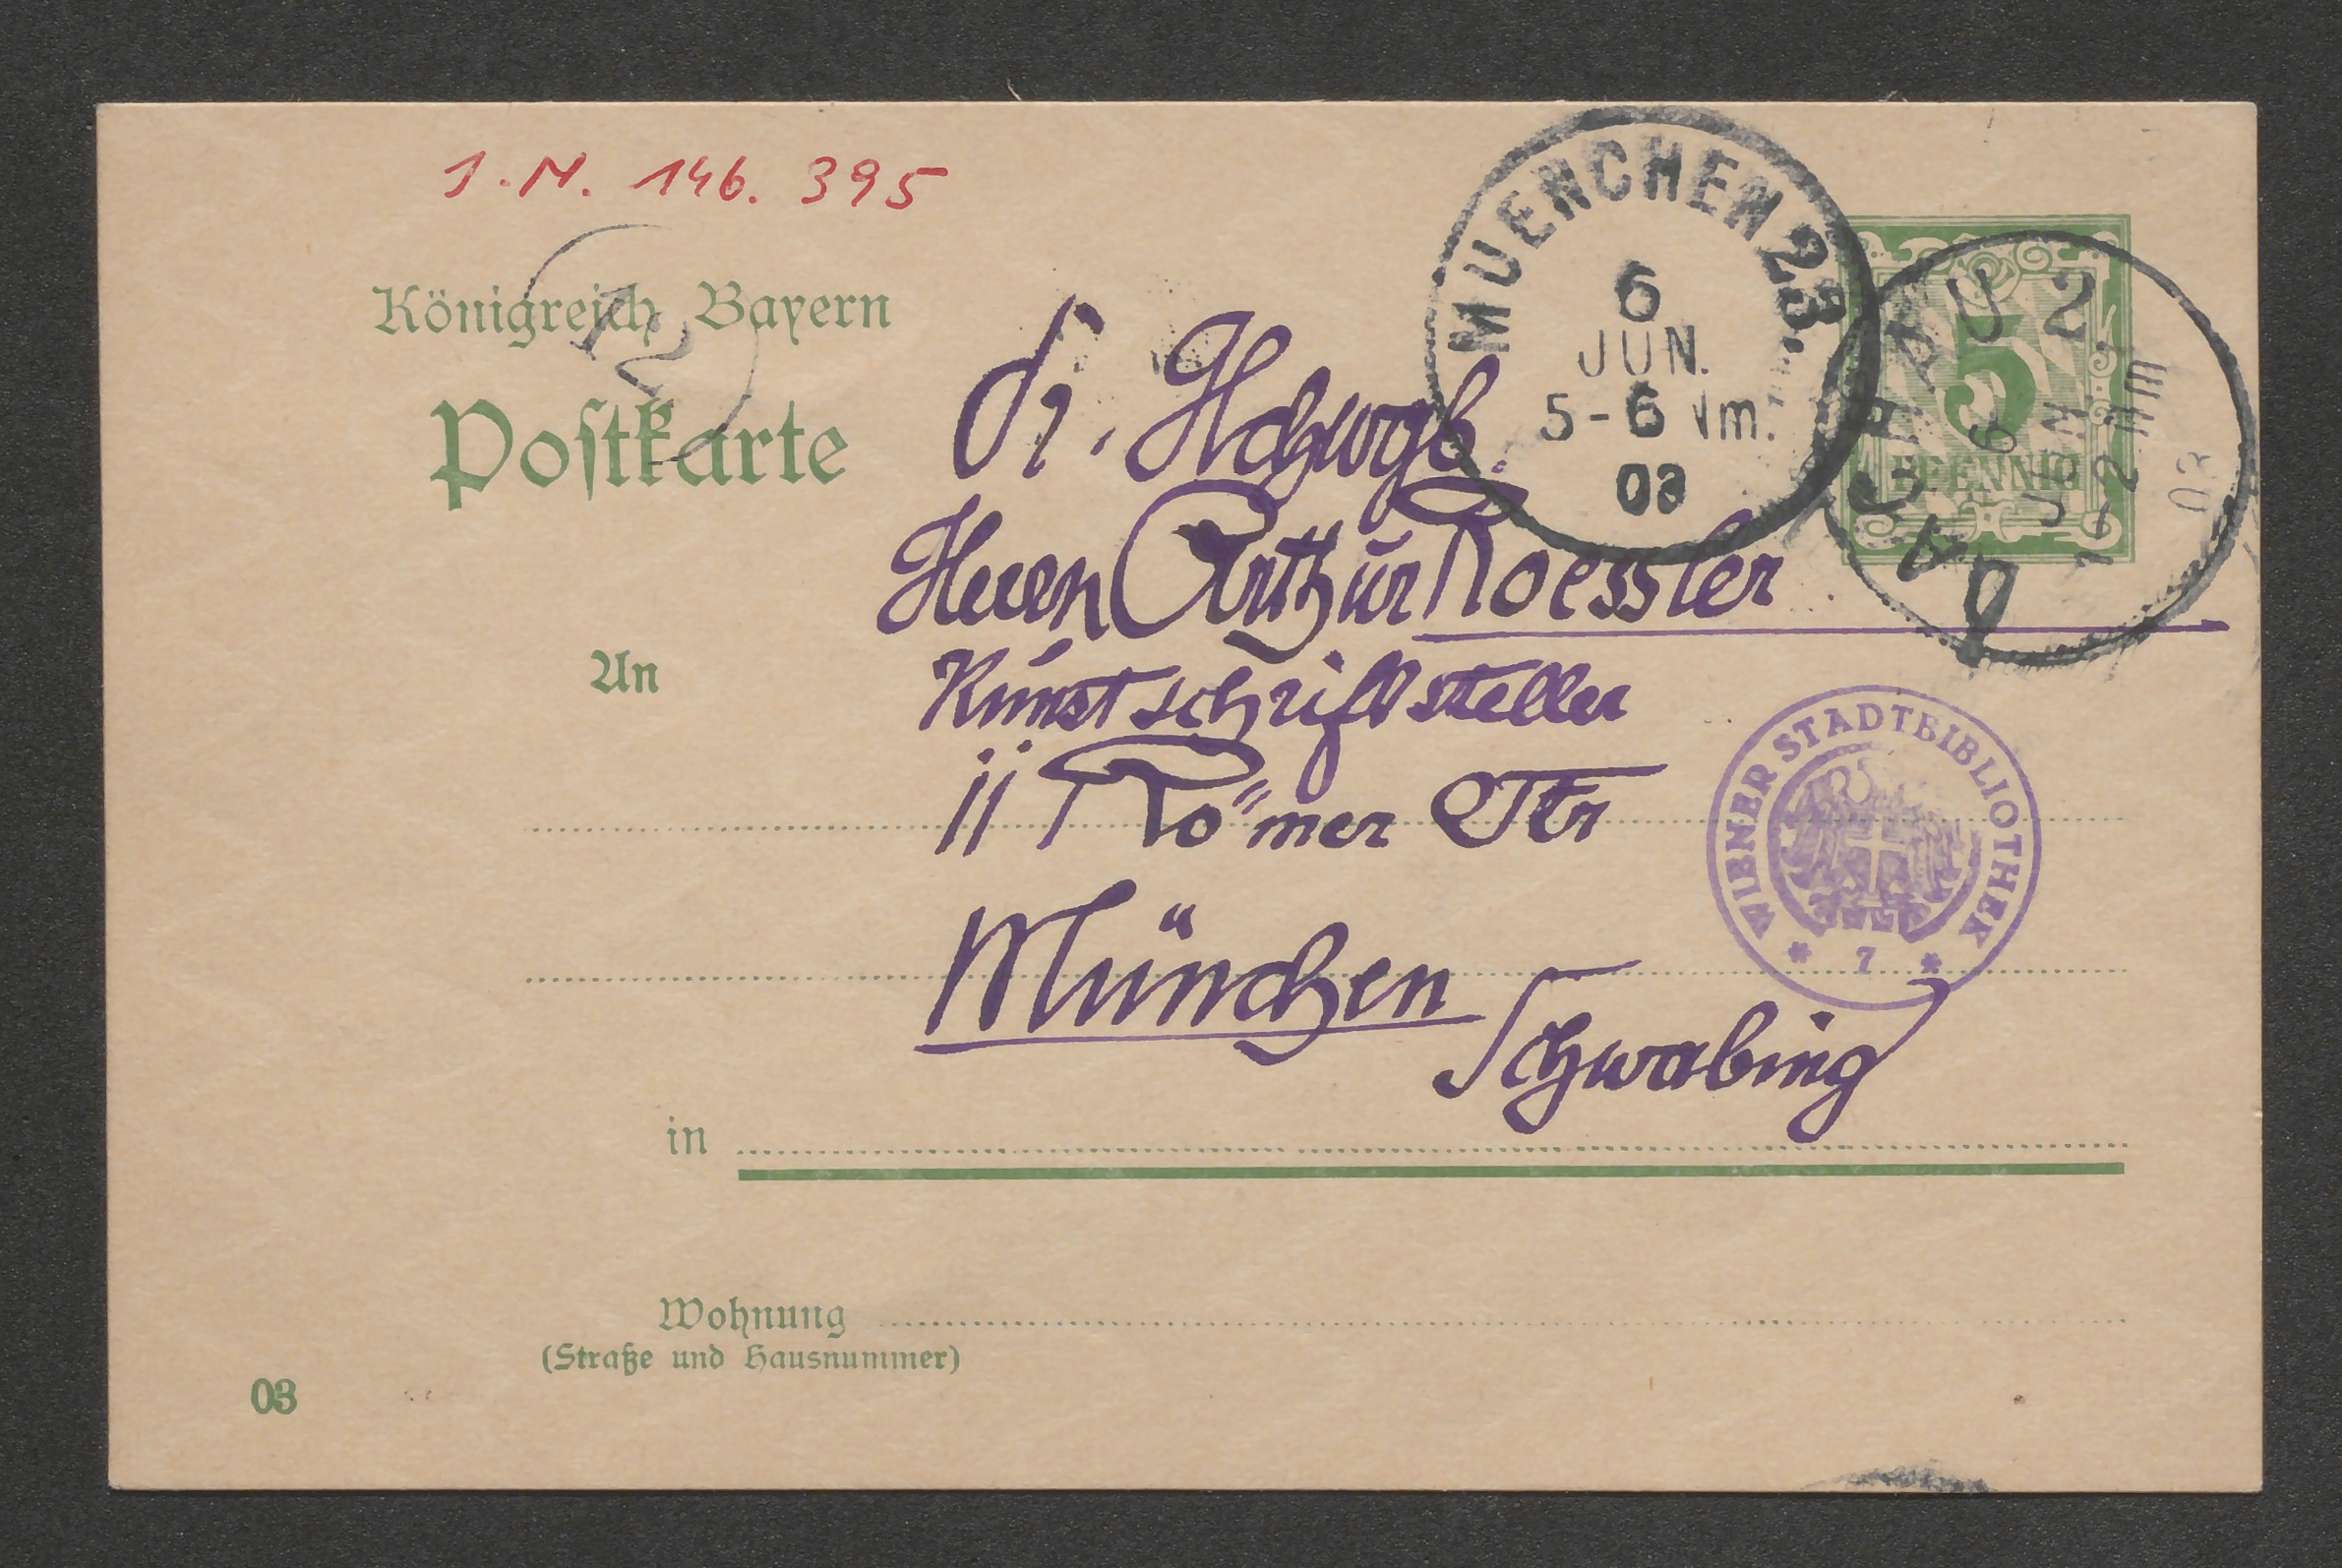 I.N. 146.395
Königreich Bayern
Postkarte
MUENCHEN 23.
6
JUN.
5-6 Nm.
03
5
PFENNIG
DACHAU 2
6
JUN
1-2 NM
03
12
S. Hchwgb.
Herrn Arthur Roessler
An
Kunstschriftsteller
11 Römer Str
WIENER STADTBIBLIOTHEK
* 7 *
München
Schwabing
in
Wohnung
(Straße und Hausnummer)
03